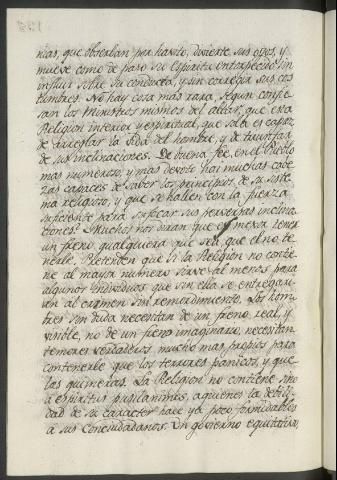 nias, que observan por havito, divierte sus ojos, y
mueve como de paso su Espiritu entorpecido sin
influir sobre su conducta, y sin corregir sus cos
tumbres. No hay cosa mas rara, segun confie
san los Ministros mismos del altar, que esta
Religion interior y espiritual, que sola es capaz
de arreglar la vida del hombre, y de triunfar
de sus inclinaciones. De buena fee, en el Pueblo
mas numeroso, y mas devoto hai muchas cave
zas capaces de saber los principios de su siste
ma religioso, y que se hallen con la fuerza
suficiente para sufocar sus perversas inclina
ciones? Muchos nos diran que es mejor tener
un freno, qualquiera que sea, que el no te
nerle. Pretenden que si la Religion no contie
ne al mayor numero sirve al menos para
algunos individuos que sin ella se entregari
an al crimen sin remordimiento. Los hom
bres sin duda necesitan de un freno real, y
visible, no de un freno imaginario, necesitan
temores verdaderos mucho mas propios para
contenerle que los terrores panicos, y que
las quimeras. La Religion no contiene sino
a espiritus pusilanimes, a quienes la debili
dad de su caracter hace ya poco formidables
a sus Conciudadanos. Un govierno equitativo,